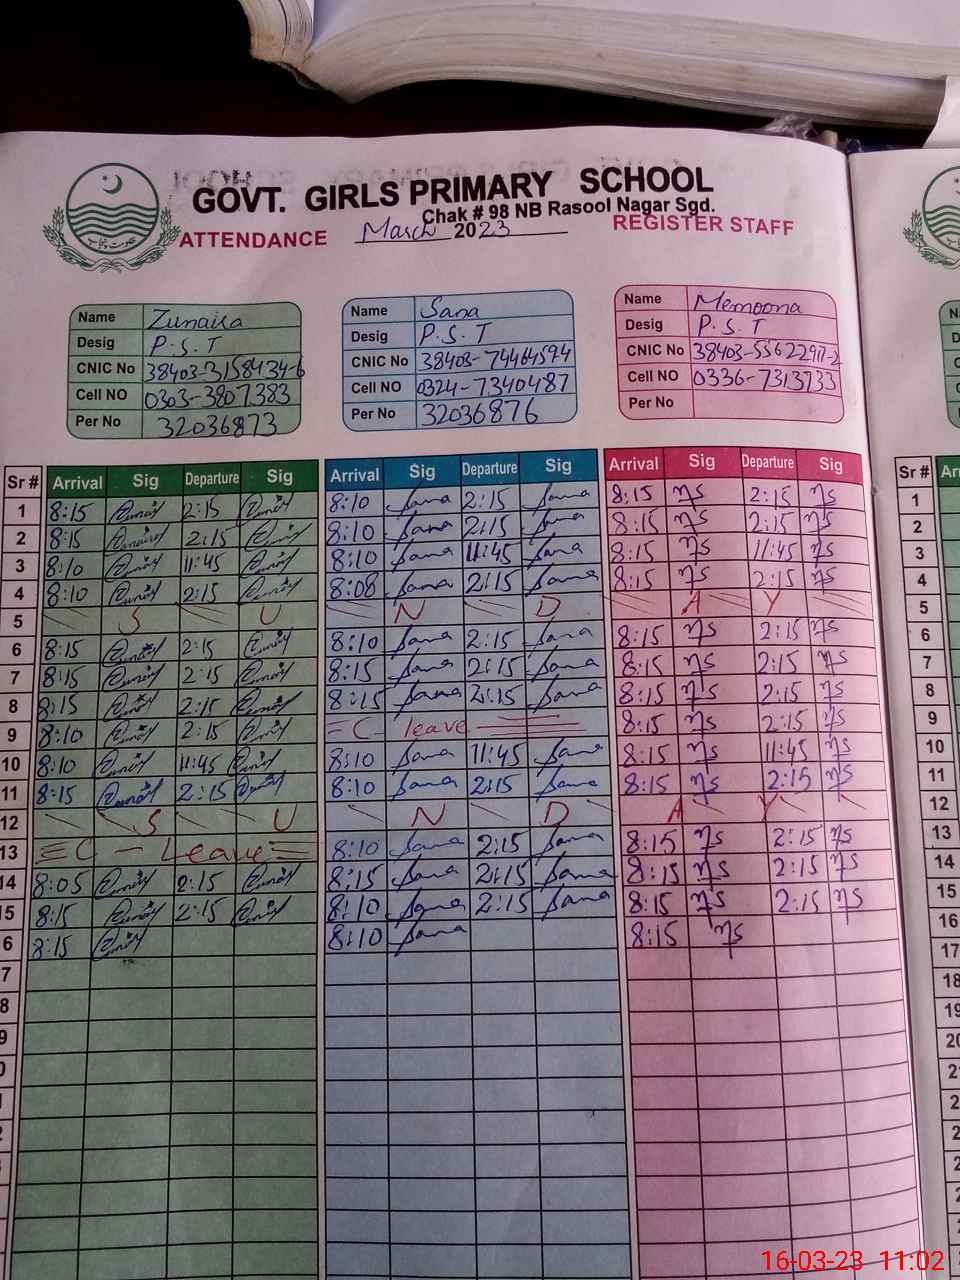 GOVT. GIRLS PRIMARY SCHOOL
Chak # 98 NB Rasool Nagar Sgd.
ATTENDANCE March 2023 REGISTER STAFF
حکومت پنجاب
Name Zunaira
Desig P.S.T
CNIC No 38403-3158434-6
Cell NO 0303-3807383
Per No 32036873
Name Sana
Desig P.S.T
CNIC No 38403-74464594
Cell NO 0324-7340487
Per No 32036876
Name Memoona
Desig P.S.T
CNIC No 38403-5562297-2
Cell NO 0336-7313733
Per No
Sr # Arrival Sig Departure Sig Arrival Sig Departure Sig Arrival Sig Departure Sig Sr #
1 8:15 2:15 8:10 Sana 2:15 Sana 8:15 2:15 1
2 8:15 2:15 8:10 Sana 2:15 Sana 8:15 2:15 2
3 8:10 11:45 8:10 Sana 11:45 Sana 8:15 11:45 3
4 8:10 2:15 8:08 Sana 2:15 Sana 8:15 2:15 4
5 S U N D A Y 5
6 8:15 2:15 8:10 Sana 2:15 Sana 8:15 2:15 6
7 8:15 2:15 8:15 Sana 2:15 Sana 8:15 2:15 7
8 8:15 2:15 8:15 Sana 2:15 Sana 8:15 2:15 8
9 8:10 2:15 C leave 8:15 2:15 9
10 8:10 11:45 8:10 Sana 11:45 Sana 8:15 11:45 10
11 8:15 2:15 8:10 Sana 2:15 Sana 8:15 2:15 11
12 S U N D A Y 12
13 C - Leave 8:10 Sana 2:15 Sana 8:15 2:15 13
14 8:05 2:15 8:15 Sana 2:15 Sana 8:15 2:15 14
15 8:15 2:15 8:10 Sana 2:15 Sana 8:15 2:15 15
6 8:15 8:10 Sana 8:15 16
7 17
8 18
9 19
0 20
16-03-23 11:02